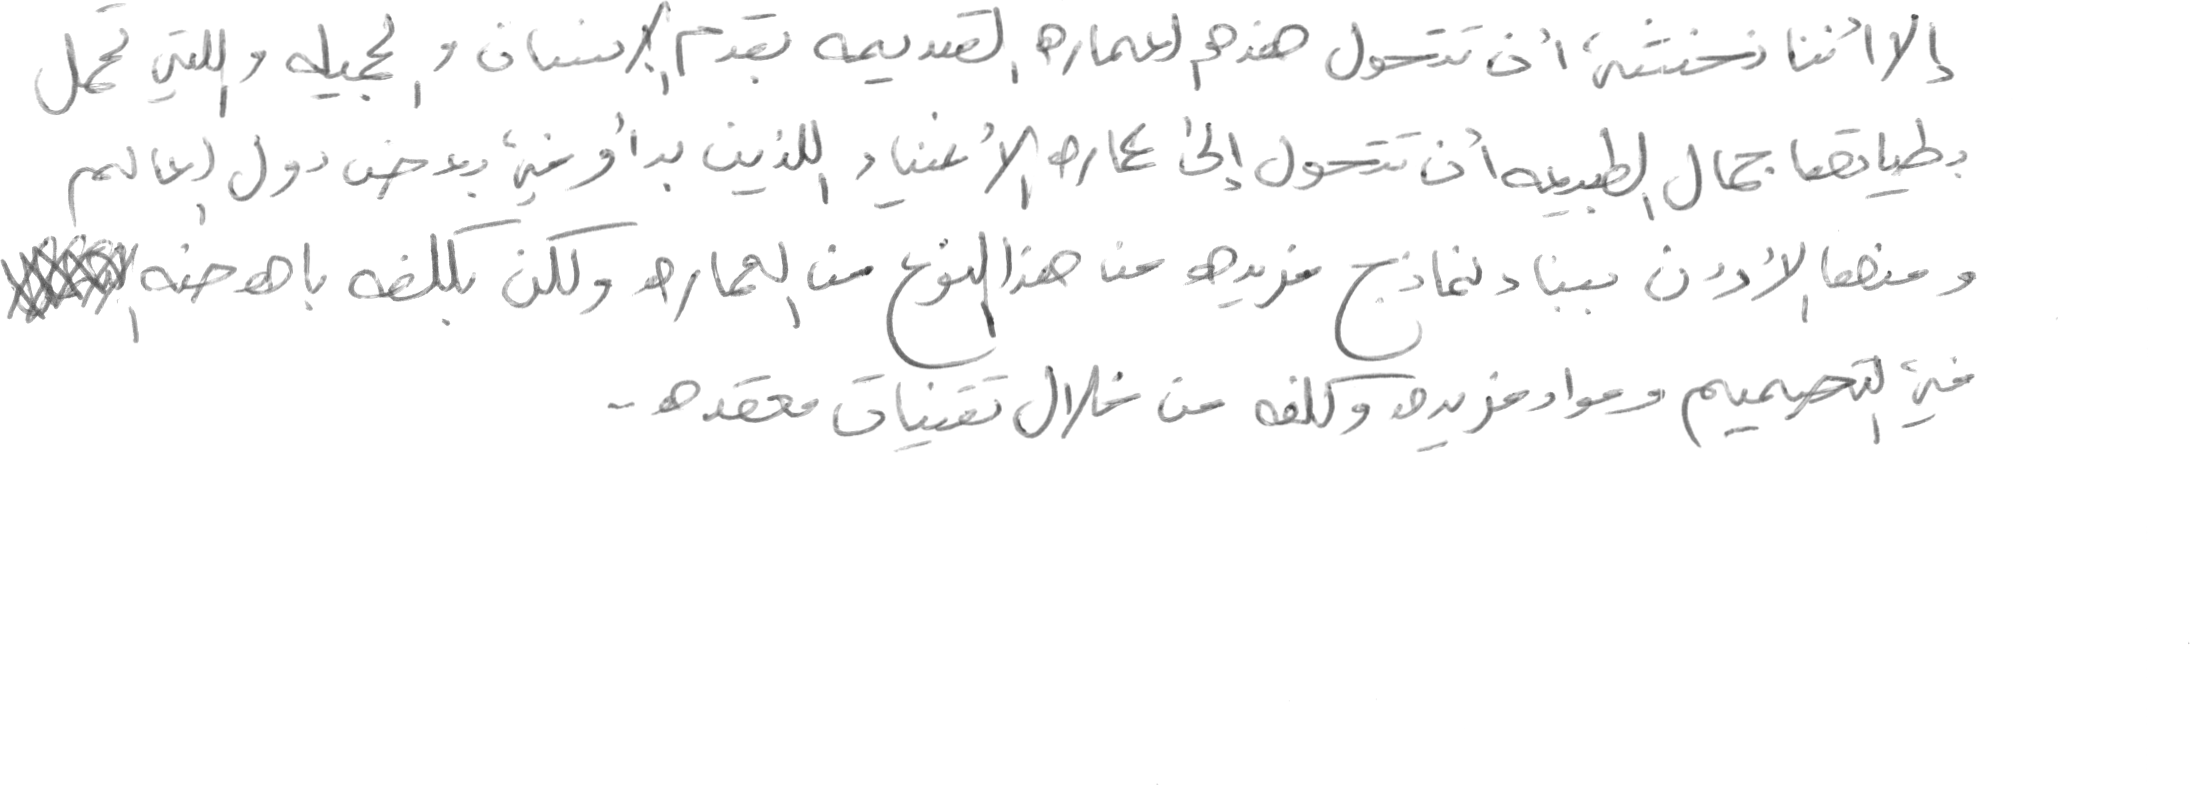 إلا أننا نخشى أن تتحول هذه العماره القديمه بقدم الإنسان و الجميله و اللتي تحمل
بطياتها جمال الطبيعه أن تتحول إلى عماره الأغنياء اللذين بدأو في بعض دول العالم
و منها الأردن ببناء نماذج فريده من هذا النوع من العماره ولكن بكلفه باهضه
في التصميم و مواد فريده وكلفه من خلال تقنيات معقده -